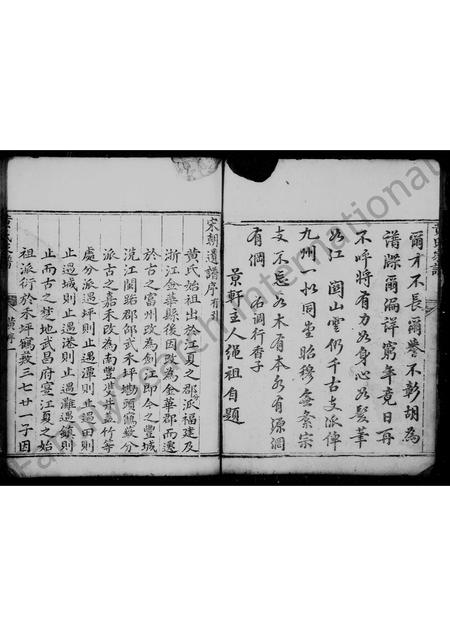 爾才不長爾譽不彰胡為
譜牒爾漏詳窮年竟日再
不呼將有力為身心為髮華
為江 閩山雲仍千古支派傳
九州一水同堂昭穆無紊宗
支不忘為木有本水有源澗
有綱 右調行香子
景軒主人繩祖自題
宋朝遺譜序 有引
黃氏始祖出於江夏之郡派福建及
浙江金華縣後因改為金華郡而遷
於古之富州改為劍江即今之豐城
沇江閩貽郡邵武禾坪坳頭鶴薮分
派古之嘉禾改為南豐雙井蓋竹等
處分派遇坪則止遇潭則止遇田則
止遇城則止遇港則止遇灘遇鎮則
止而古之楚地武昌府寔江夏之始
祖派衍於禾坪鶴薮三七廿一子因
FamilySearch International